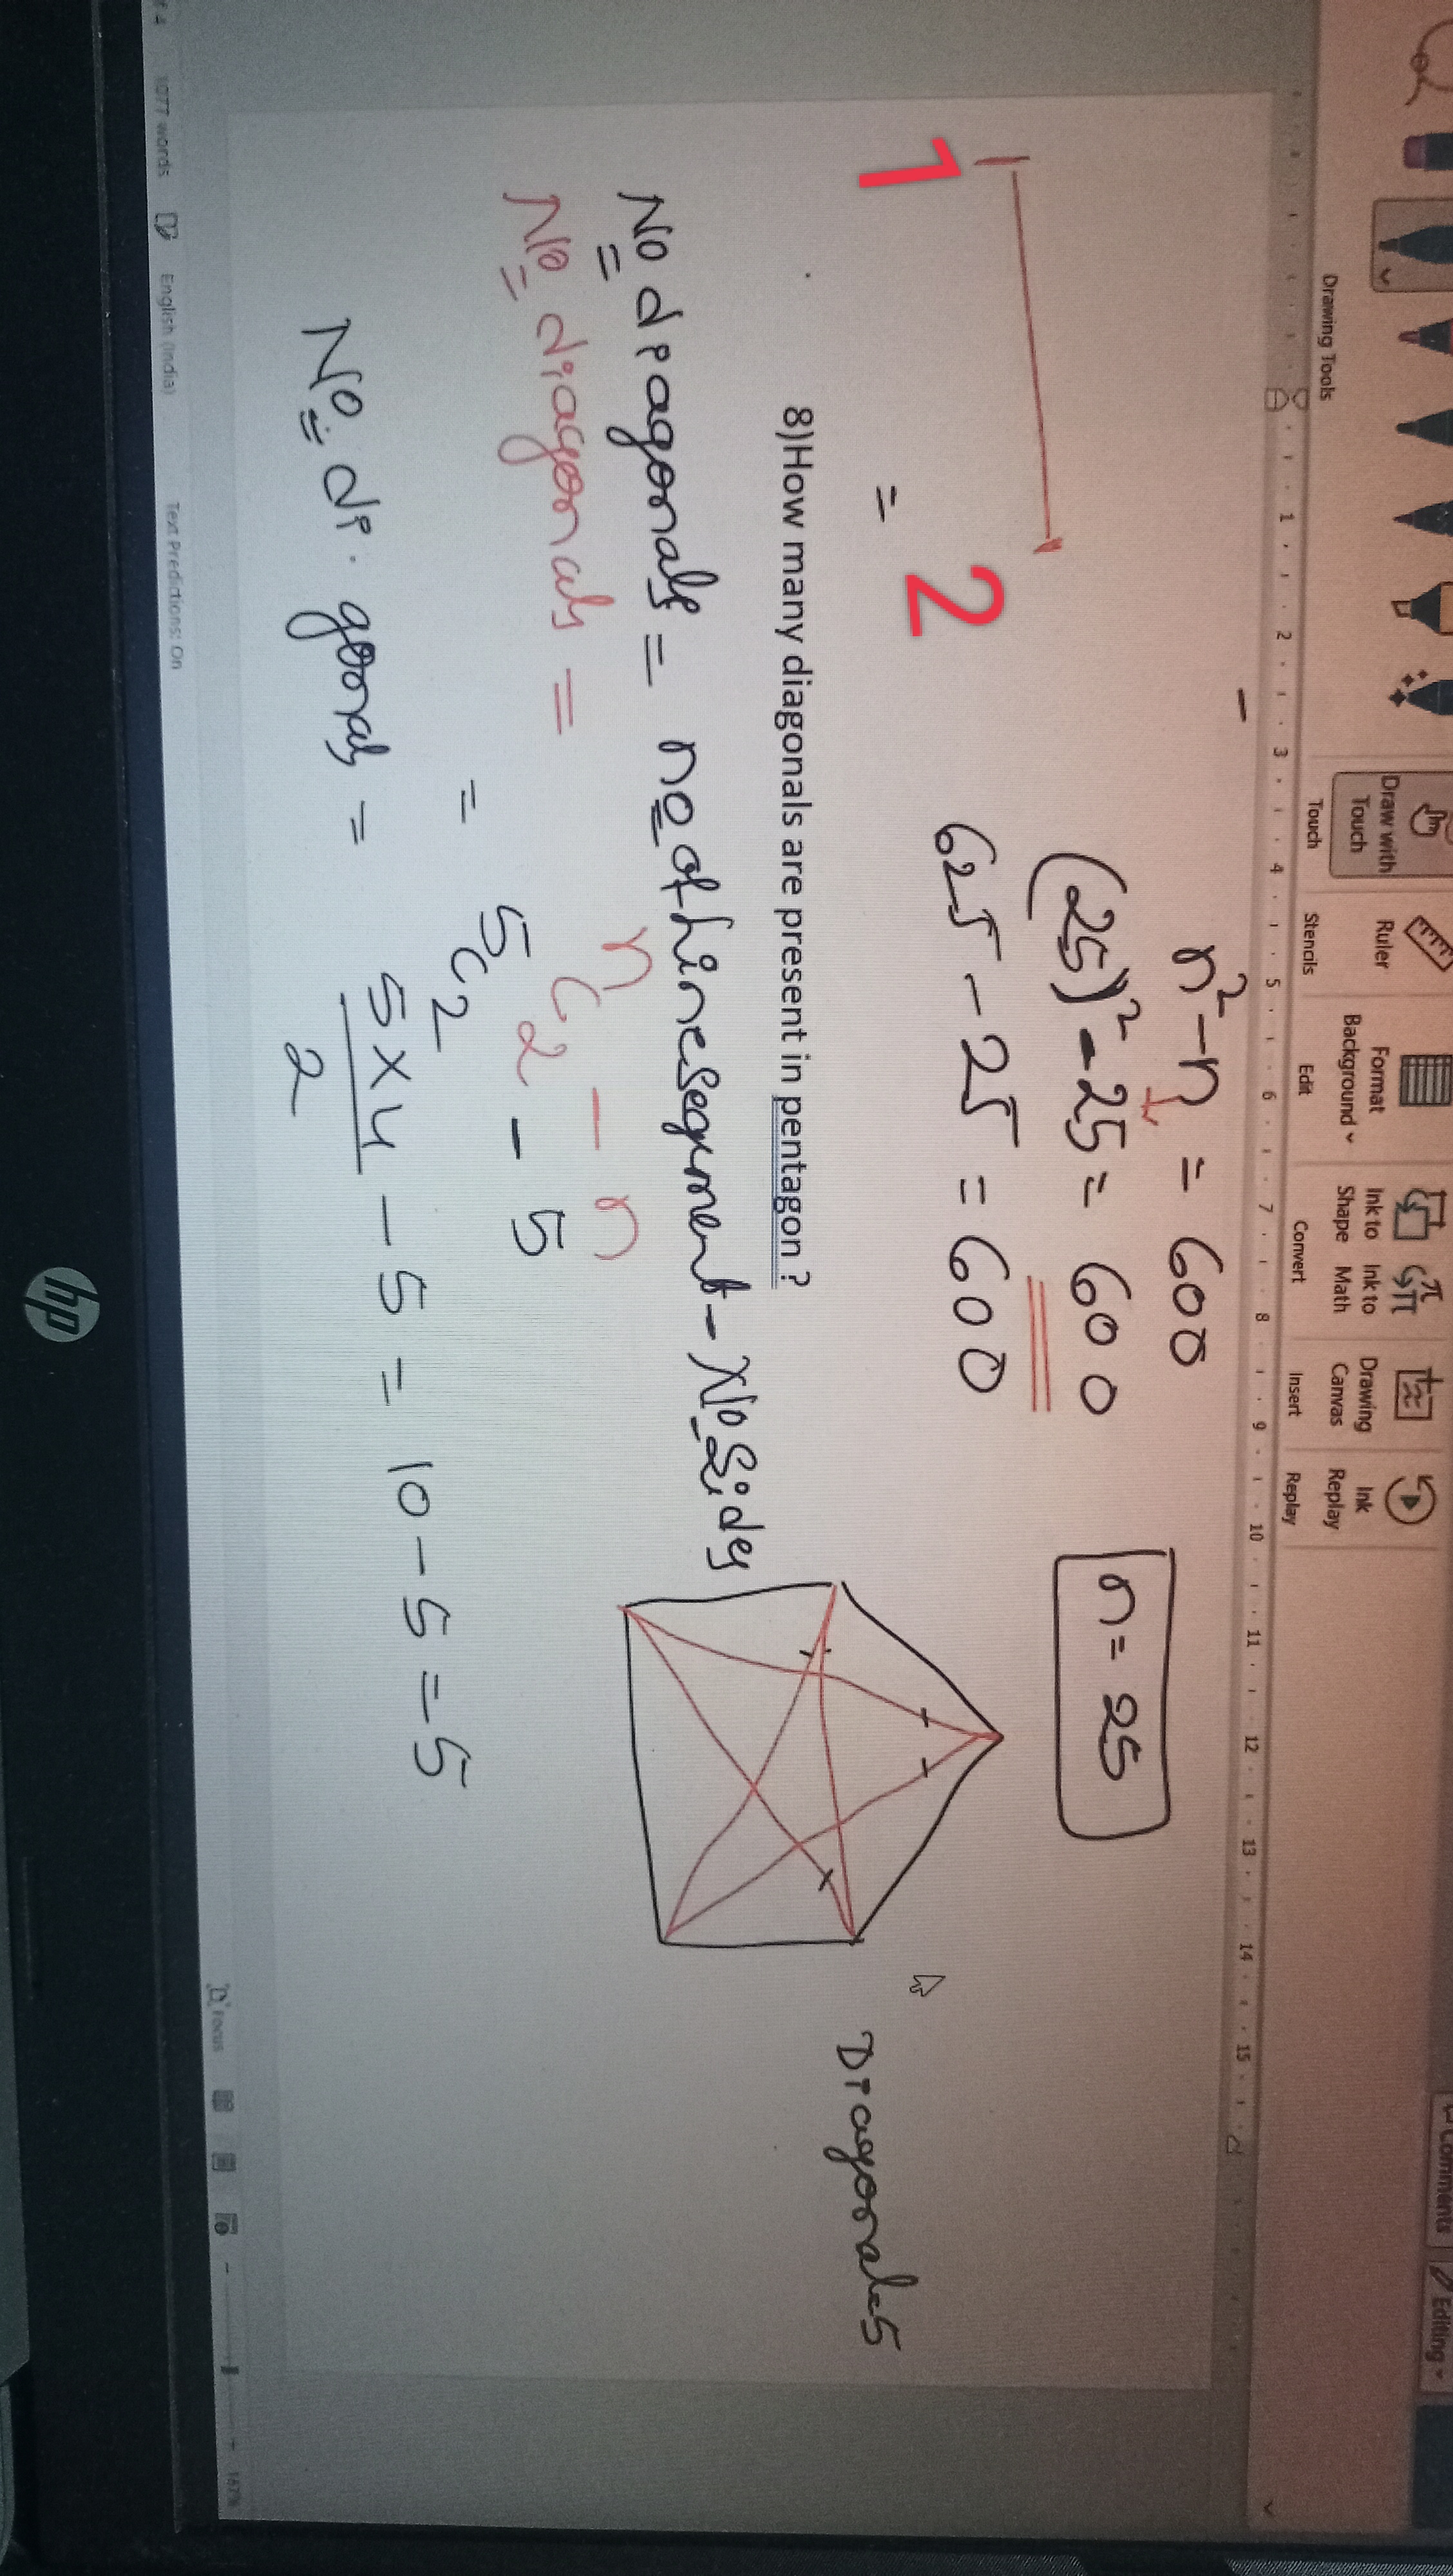 Comments
Editing
Draw with Touch
Ruler
Format Background
Ink to Shape
Ink to Math
Drawing Canvas
Ink Replay
Drawing Tools
Touch
Stencils
Edit
Convert
Insert
Replay
1 2 3 4 5 6 7 8 9 10 11 12 13 14 15
n² - n = 600
(25)² - 25 = 600
n = 25
625 - 25 = 600
1
2
=
8)How many diagonals are present in pentagon ?
Diagonals
No diagonals = no of line segment - No Sides
No diagonals = nC2 - n
= 5C2 - 5
No di.gonals = 5 × 4 / 2 - 5 = 10 - 5 = 5
1077 words
English (India)
Text Predictions: On
Focus
167%
hp